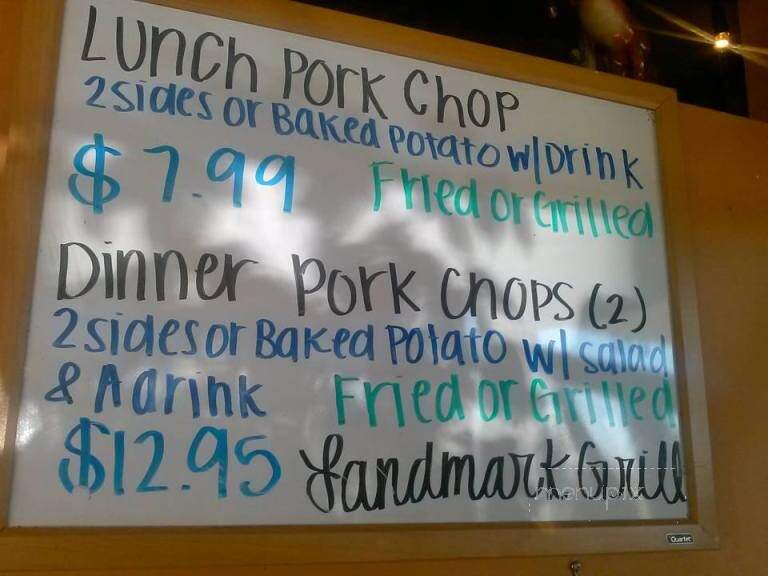 Lunch Pork Chop
2 sides or Baked Potato w/ Drink
$7.99 Fried or Grilled
Dinner Pork Chops (2)
2 sides or Baked Potato w/ salad
& A drink Fried or Grilled
$12.95 Landmark Grill
menupix
Quartet